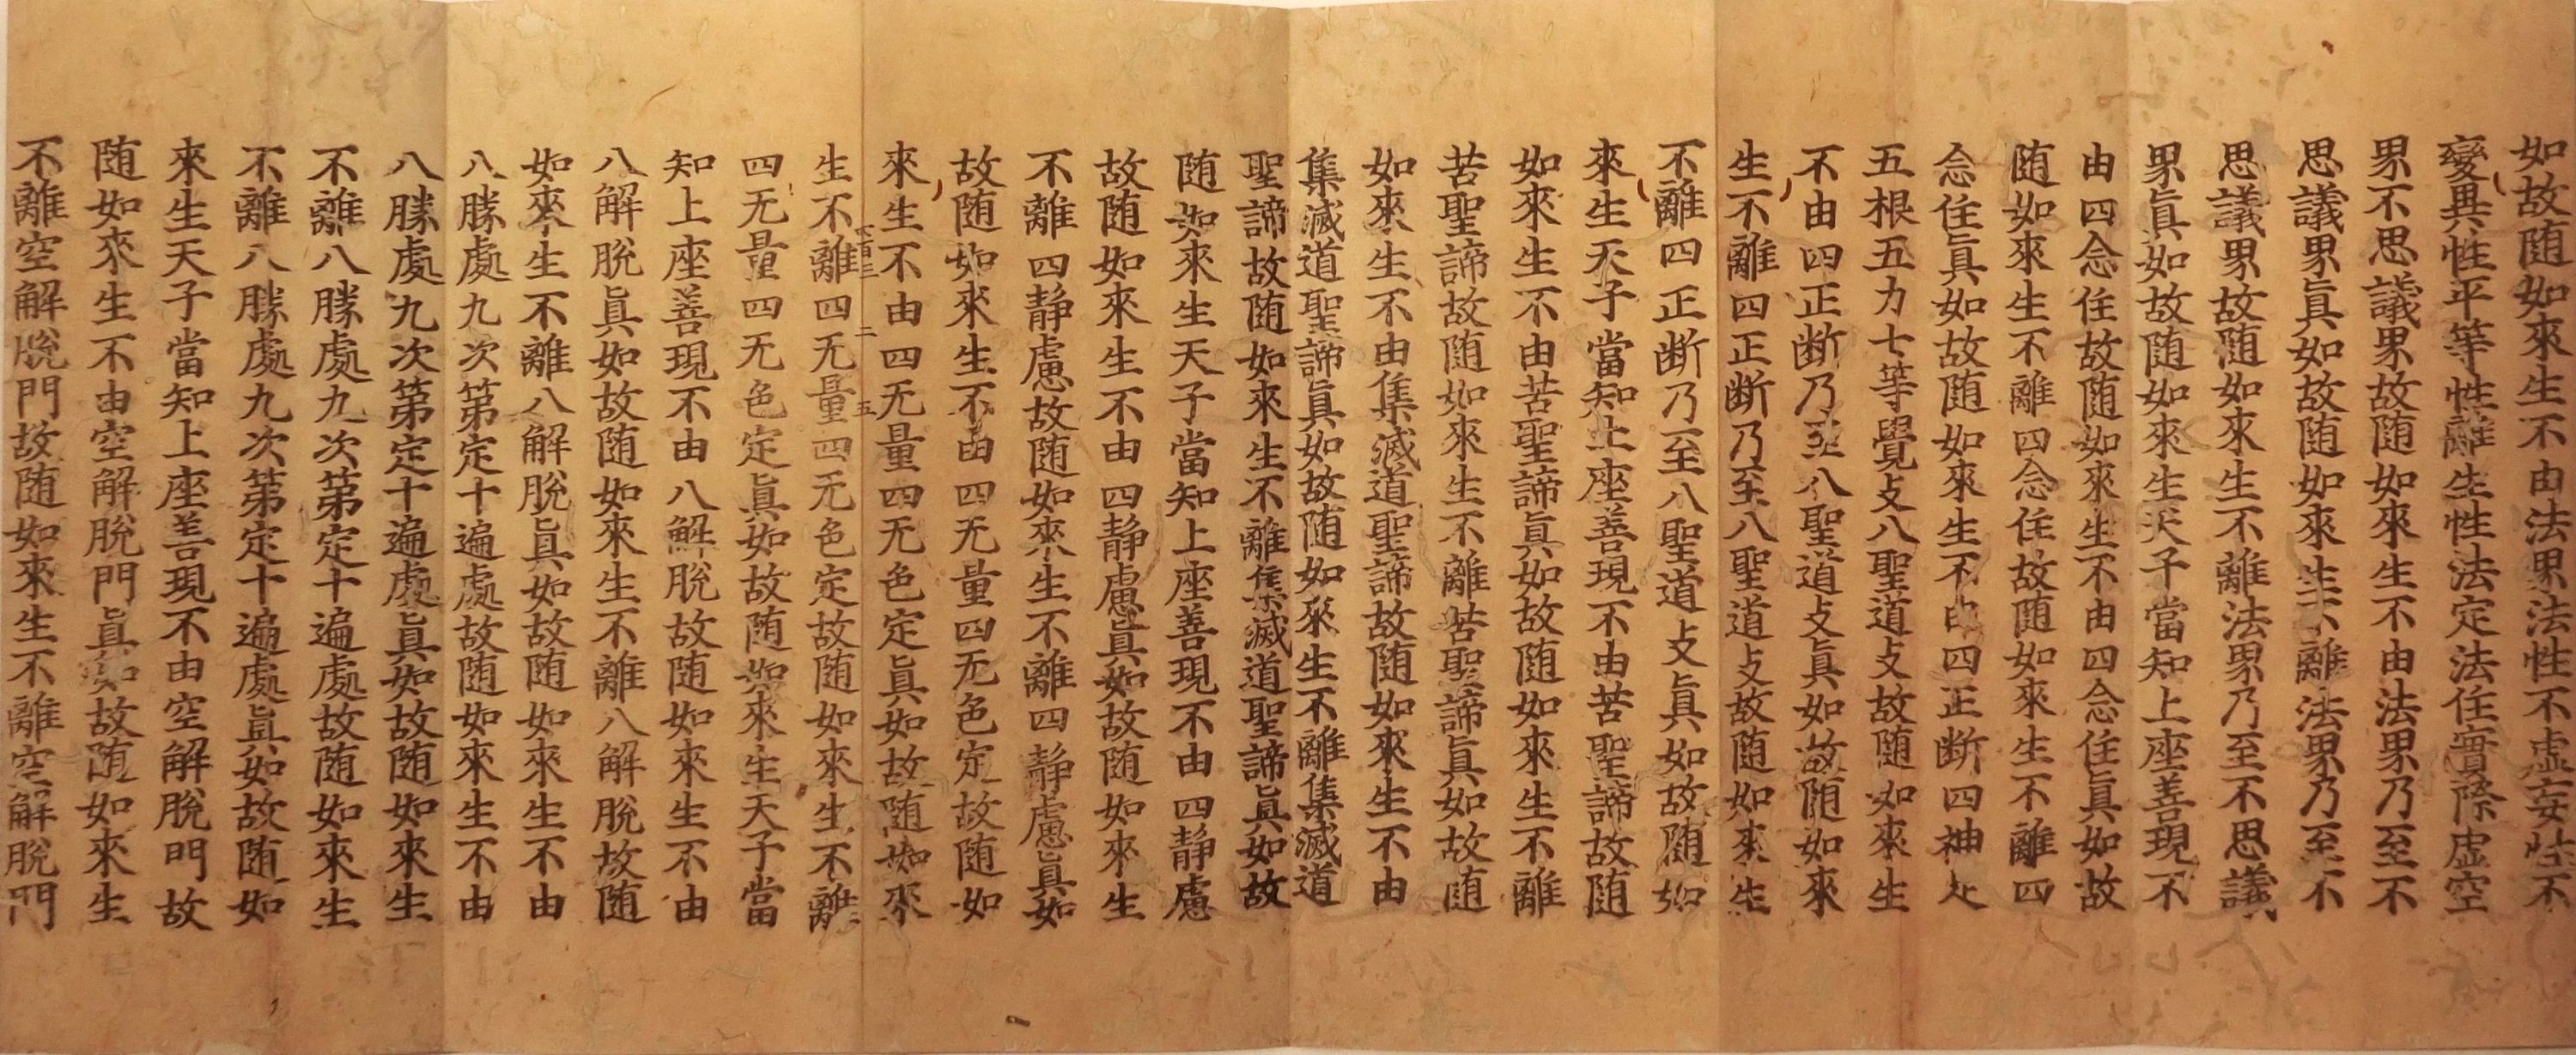 如故随如來生不由法界法性不虚妄性不
變異性平等性離生性法定法住實際虚空
界不思議界故随如來生不由法界乃至不
思議界眞如故随如來生不離法界乃至不
思議界故随如來生不離法界乃至不思議
界眞如故随如來生天子當知上座善現不
由四念住故随如來生不由四念住眞如故
随如來生不離四念住故随如來生不離四
念住眞如故随如來生不由四正断四神足
五根五力七等覺支八聖道支故随如來生
不由四正断乃至八聖道支眞如故随如來
生不離四正断乃至八聖道支故随如來生
不離四正断乃至八聖道支眞如故随如
來生天子當知上座善現不由苦聖諦故随
如來生不由苦聖諦眞如故随如來生不離
苦聖諦故随如來生不離苦聖諦眞如故随
如來生不由集滅道聖諦故随如來生不由
集滅道聖諦眞如故随如來生不離集滅道
聖諦故随如來生不離集滅道聖諦眞如故
随如來生天子當知上座善現不由四静慮
故随如來生不由四静慮眞如故随如來生
不離四静慮故随如來生不離四静慮眞如
故随如來生不由四无量四无色定故随如
來生不由四无量四无色定眞如故随如來
生不離四无量四无色定故随如來生不離
四无量四无色定眞如故随如來生天子當
知上座善現不由八解脱故随如來生不由
八解脱眞如故随如來生不離八解脱故随
如來生不離八解脱眞如故随如來生不由
八勝處九次第定十遍處故随如來生不由
八勝處九次第定十遍處眞如故随如來生
不離八勝處九次第定十遍處故随如來生
不離八勝處九次第定十遍處眞如故随如
來生天子當知上座善現不由空解脱門故
随如來生不由空解脱門眞如故随如來生
不離空解脱門故随如來生不離空解脱門